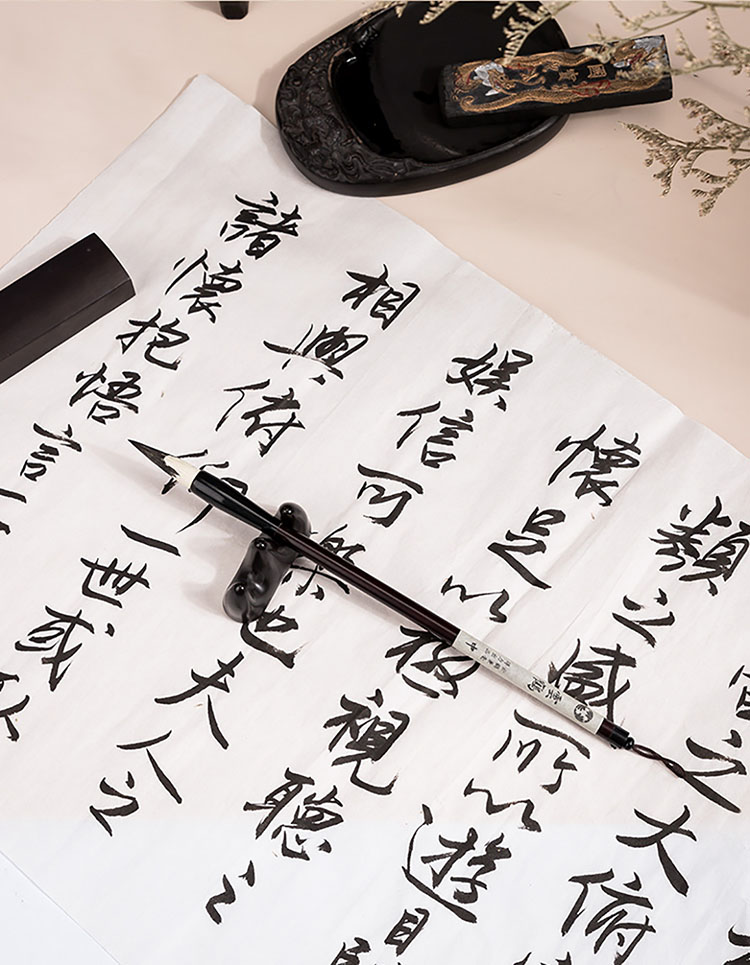 之大俯
類之盛所以遊目
懷足以極視聽之
娛信可樂也夫人之
相與俯仰一世或
諸懷抱悟言一
國寶
中